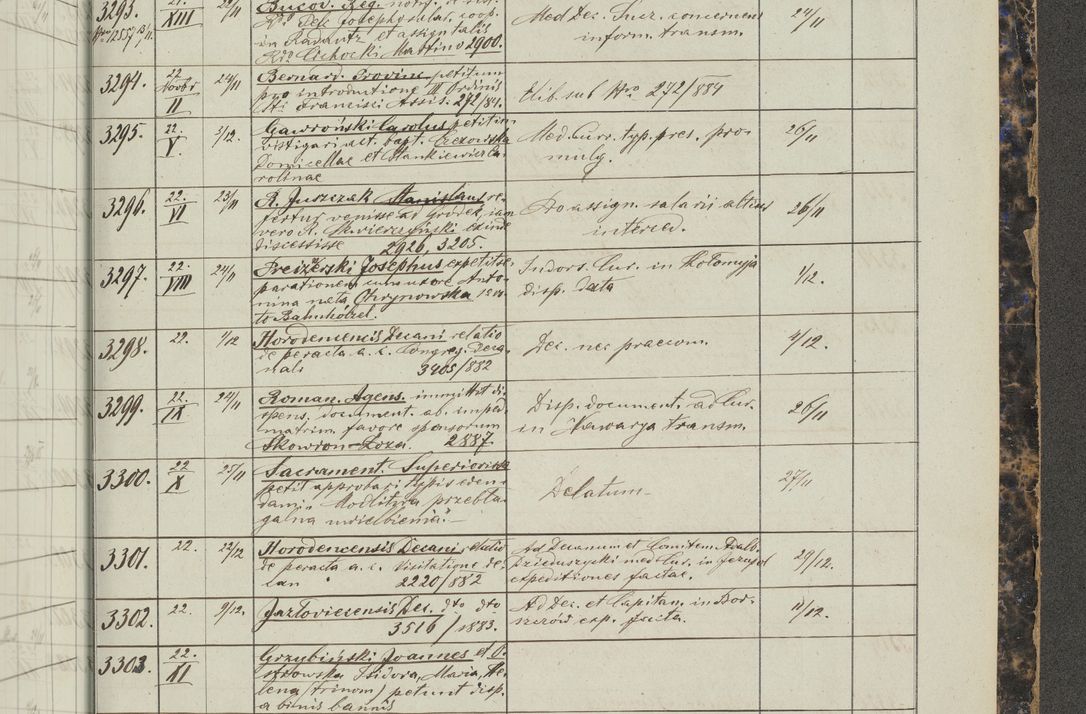 3293. XIII 22/11 Bucov. Reg.
Josephosilat. coop.
in Radautz et assignatalis
Rdo Cichocki Martino 2900.
Med Dec. Sucz. concernens
inform. transm. 24/11
3294. 22 Novbr II 24/11 Bernard. Provinc. petitum
pro introductione III Ordinis
Sti Francisci Assis. 272/84.
Elib. sub Nro 272/884
3295. 22. V. 3/12. Gawroński Carolus petit in-
vestigari act. bapt.
Domicellae et Stankiewicz Ca-
rolinae
Med. Curr. typ. pres. pro-
mulg. 26/11
3296. 22. VI 23/11 R. Juszczak Stanislaus re-
fertur venisse ad Grodek, jam
vero R. exinde
discessisse 2926, 3205.
Pro assign. salarii altius
interced. 26/11
3297. 22. VIII 24/11 Josephus expetit se-
parationem cum uxore Anto-
nina nata Chrynowska
to Bahnhötel.
Indors. Cur. in Kołomyja
disp. Data 1/12.
3298. 22. 1/12 Horodencensis Decani relatio
de peracta a. c. Congreg. Deca-
nali 3405/882
Dec. nec praecom. 4/12.
3299. 22. IX 24/11 Roman. Agens. immittit di-
spens. document. ab. imped.
matrim. favore sponsorum
Skowron-Łoza. 2887.
Disp. document. ad Cur.
in Nawarya transm. 26/11
3300. 22 X 25/11 Sacrament. Superiorissa
petit approbari typis eden-
dam „Modlitwa przebła-
galna uwielbienia"-
Delatum 27/11
3301. 22. 22/12 Horodencensis Decani relatio
de peracta a. c. Visitatione de-
can 2220/882
Ad Decanum et Comitem Adalb.
Dzieduszycki med Cur. in Jezupol
expeditiones factae. 29/12.
3302. 22. 9/12. Jazłoviecensis Dec. dto dto
3516/1883.
Ad Dec. et Capitan. in Bor-
szczów exp. facta. 11/12.
3303 22. XI Grzybiński Joannes et O-
strowska Isidora, Maria, He-
lena (trinom) petunt disp.
a binis bannis